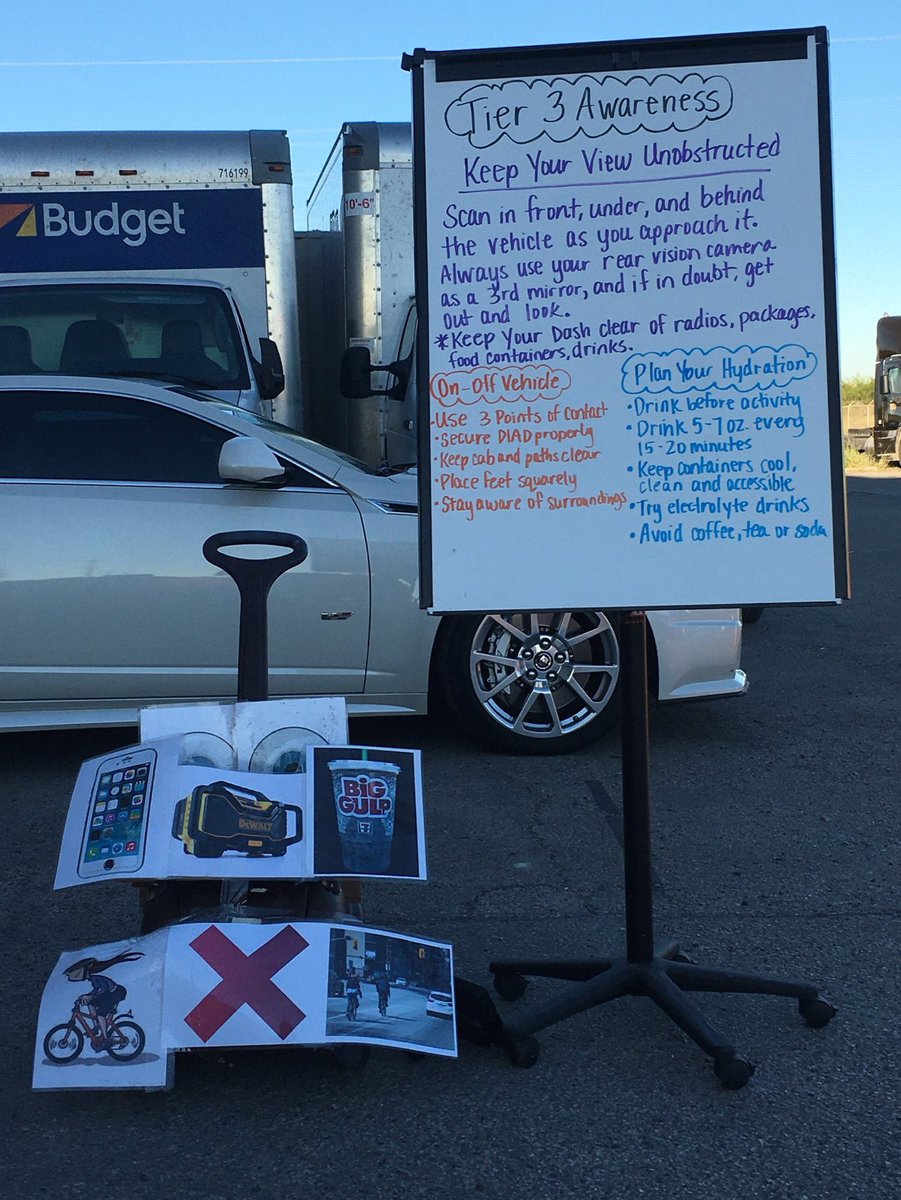 716199
Budget
10'-6"
Tier 3 Awareness
Keep Your View Unobstructed
Scan in front, under, and behind
the vehicle as you approach it.
Always use your rear vision camera
as a 3rd mirror, and if in doubt, get
out and look.
*Keep Your Dash clear of radios, packages,
food containers, drinks.
On-Off Vehicle
-Use 3 Points of Contact
•Secure DIAD properly
•Keep cab and paths clear
•Place feet squarely
•Stay aware of surroundings
Plan Your Hydration
•Drink before activity
•Drink 5-7 oz. every
15-20 minutes
•Keep containers cool,
clean and accessible
•Try electrolyte drinks
•Avoid coffee, tea or soda
DEWALT
BIG
GULP